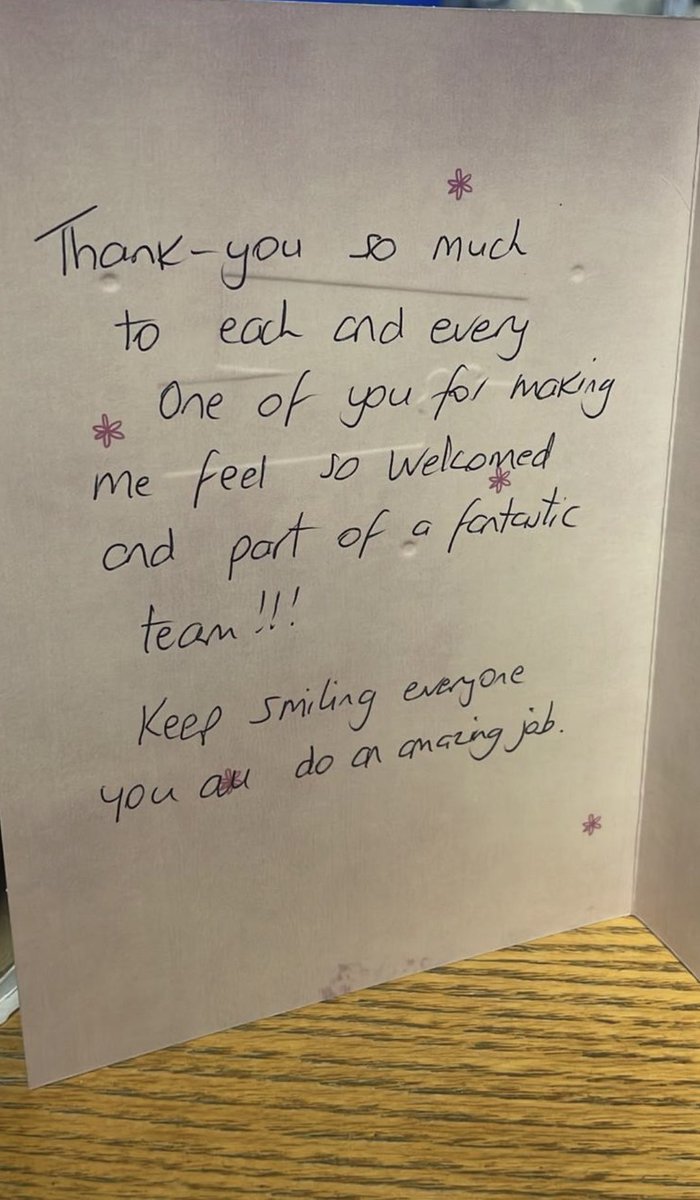 Thank-you so much
to each and every
One of you for making
me feel so welcomed
and part of a fantastic
team!!!
Keep smiling everyone
you all do an amazing job.